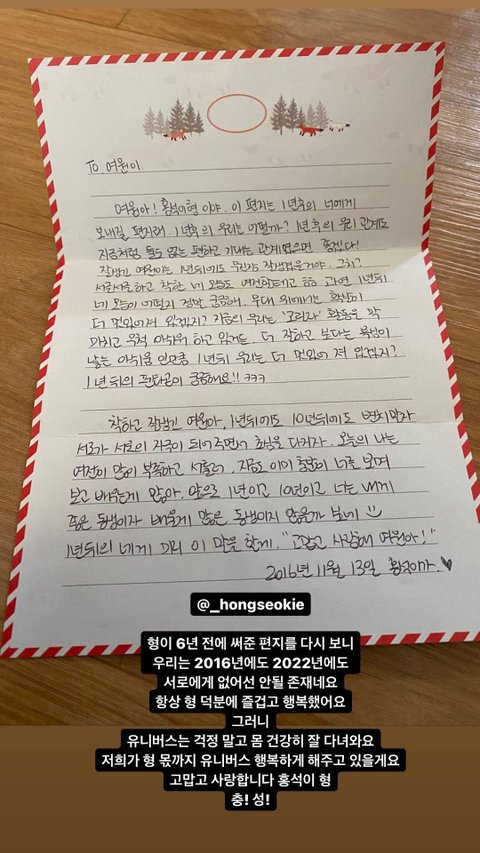 To. 여원이
여원아! 홍석이형이야. 이 편지는 1년후의 너에게
보내질 편지래. 1년후의 우리는 어떨까? 1년후의 우리 관계도
지금처럼 둘도 없는 편하고 기대는 관계였으면 좋겠다!
잘생긴 여원이는 1년뒤에도 우리랑 잘생겼을거야. 그치?
하고 착한 네 모습도 하고 ㅎㅎ 과연 1년뒤
네 모습이 어떨지 정말 궁금해. 무대 위에서는
더 멋있어져 있겠지? 지금의 우리는 '고릴라' 활동을 막
마치고 아쉬워 하고 있거든. 더 잘하고 싶다는
낳는 아쉬움인만큼 1년뒤 우리는 더 멋있어 져 있겠지?
1년 뒤의 펜타곤이 궁금해요!! ㅋㅋㅋ
착하고 잘생긴 여원아, 1년뒤에도 10년뒤에도 변치말자
서로가 서로의 자극이 되어주면서 초심을 다지자. 오늘의 나는
여전히 많이 부족하고 서툴러. 지금도 이미 충분히 너를 보며
보고 배우는게 많아. 앞으로 1년이고 10년이고 너는 내게
좋은 동생이자 배울게 많은 동생이지 않을까 싶네 :)
1년뒤의 네게 미리 이 말을 할게. "고맙고 사랑해 여원아!"
2016년 11월 13일 홍석이가.♥
@_hongseokie
형이 6년 전에 써준 편지를 다시 보니
우리는 2016년에도 2022년에도
서로에게 없어선 안될 존재네요
항상 형 덕분에 즐겁고 행복했어요
그러니
유니버스는 걱정 말고 몸 건강히 잘 다녀와요
저희가 형 몫까지 유니버스 행복하게 해주고 있을게요
고맙고 사랑합니다 홍석이 형
충! 성!